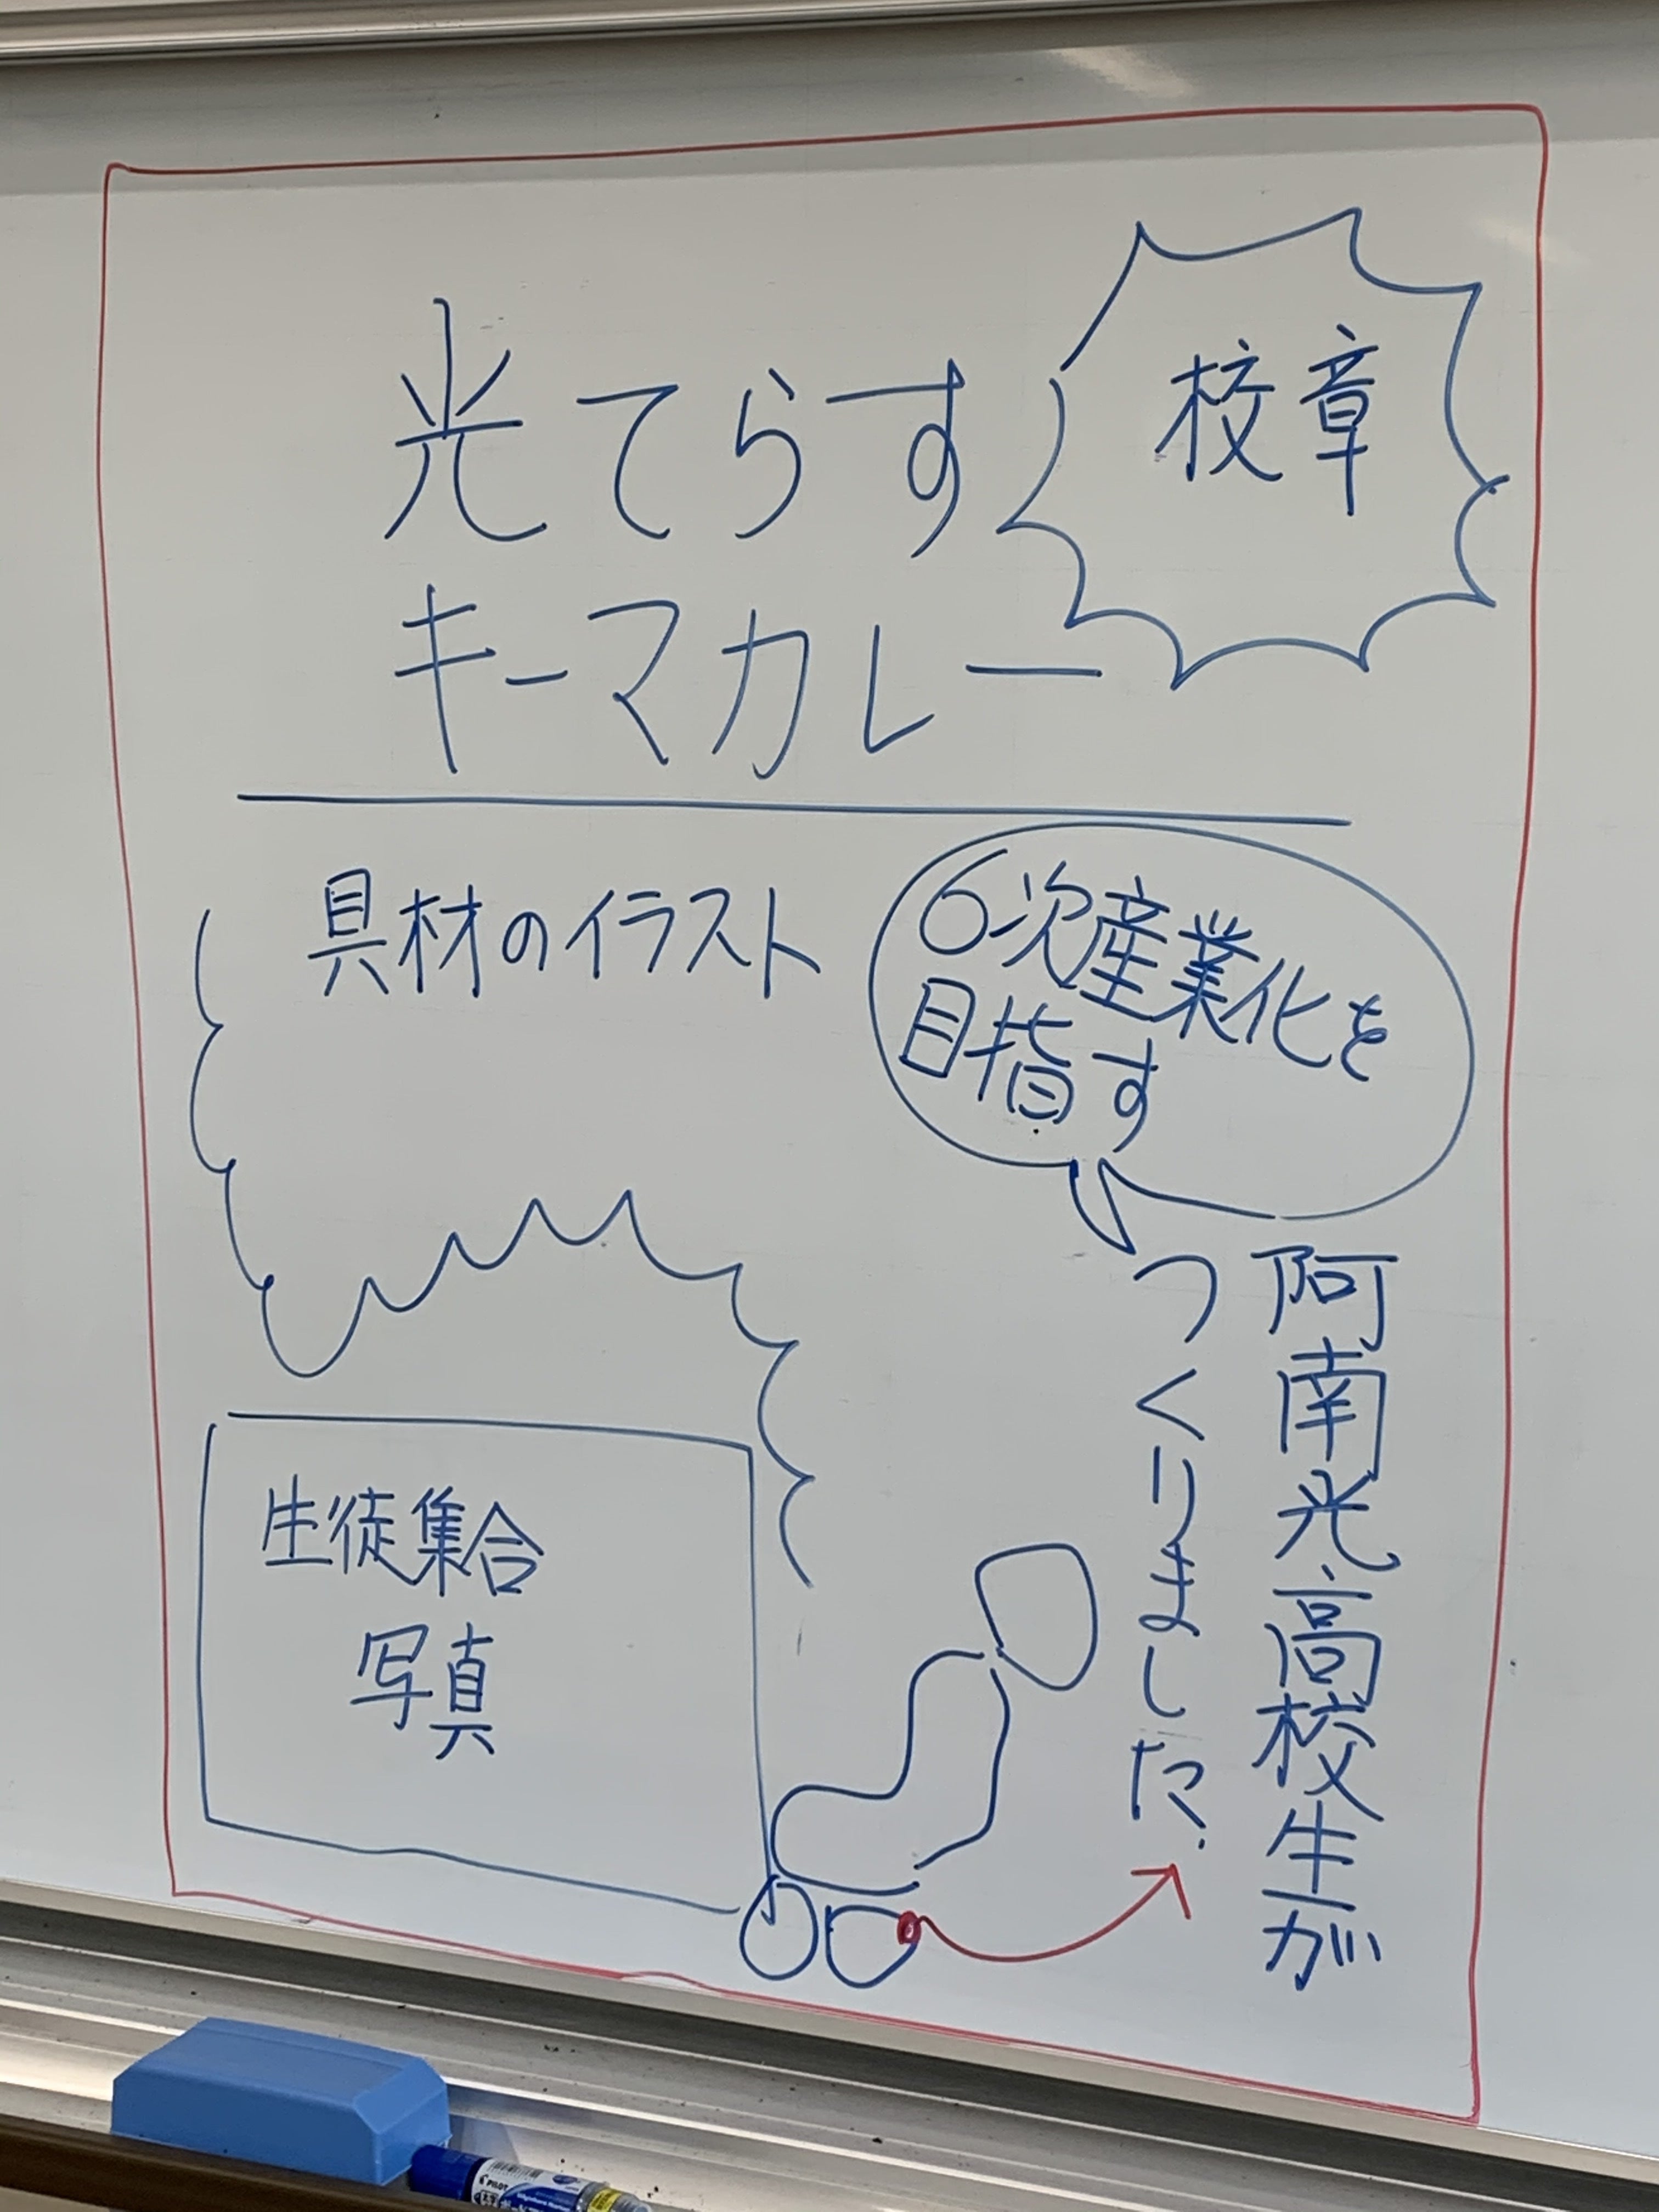 光てらす
キーマカレー
校章
具材のイラスト
6次産業化を
目指す
阿南光高校生が
つくりました.
生徒集合
写真
PILOT